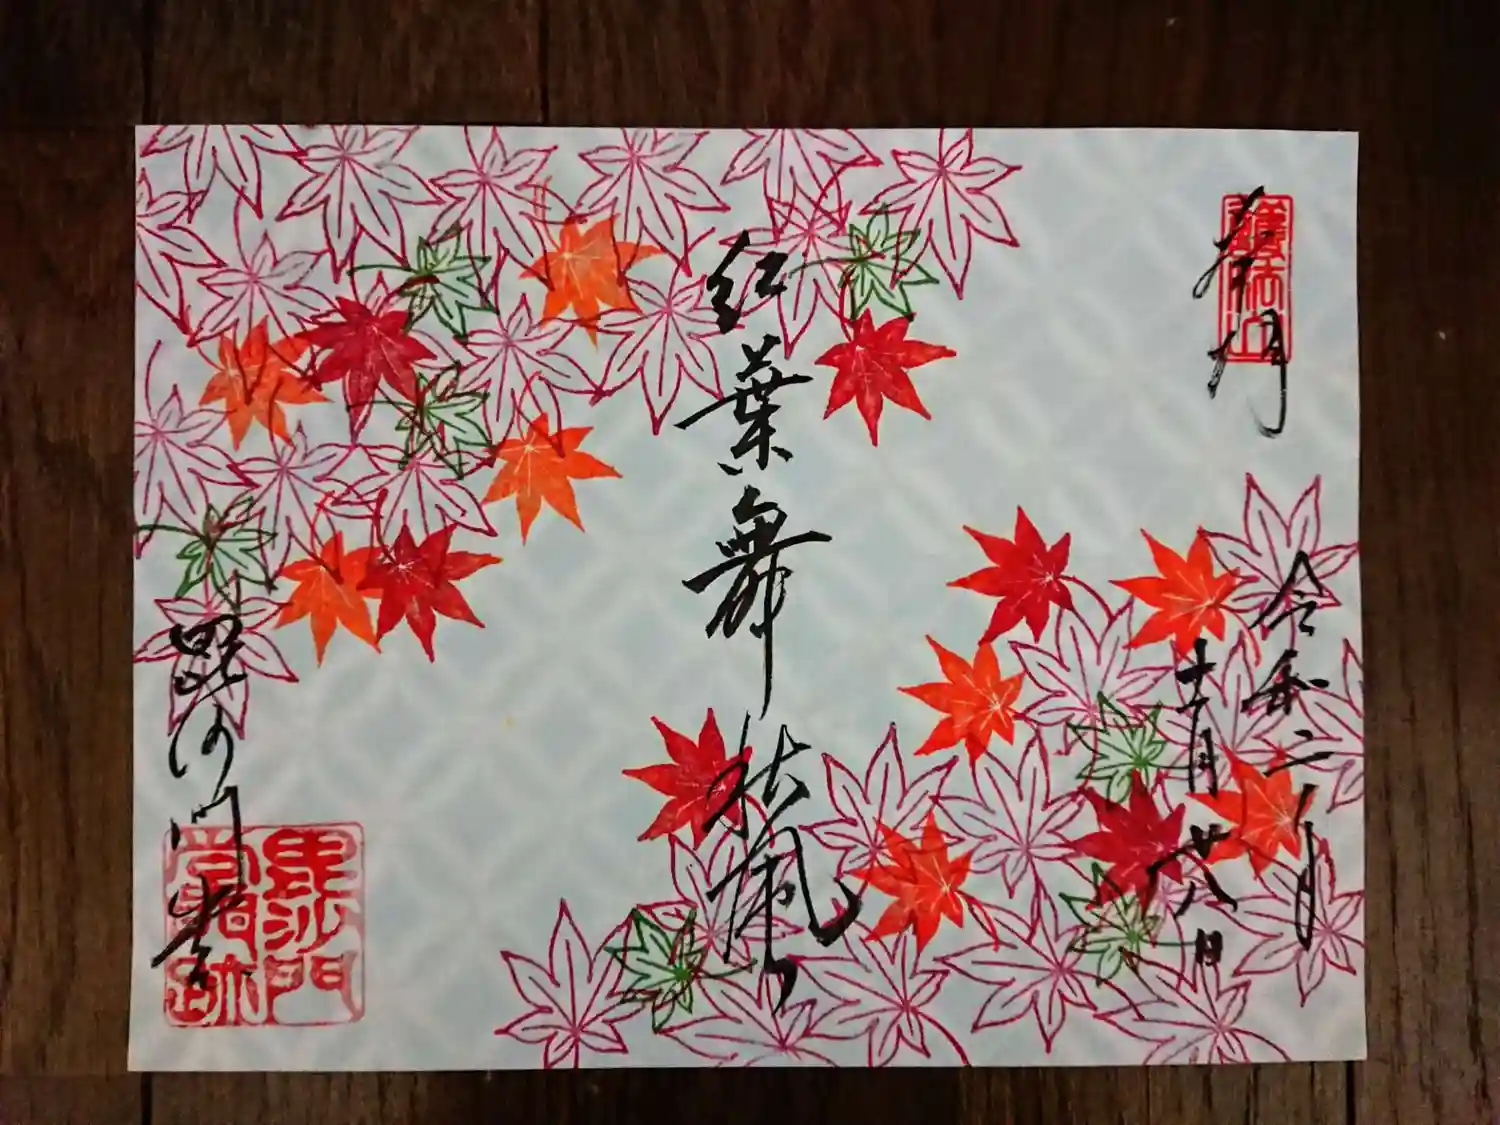 奉拝
護法山
令和二年
十一月廿八日
紅葉舞秋風
毘沙門堂
毘沙門
堂門跡